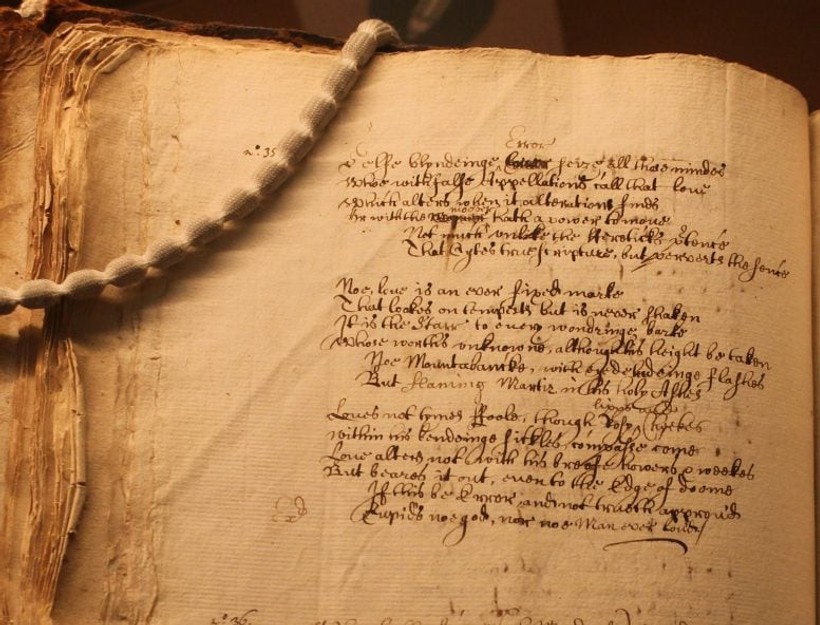 Error
nº. 35 Selfe blyndeinge seize all those mindes
Who with false Appellations call that love
Which alters when it alterations finds
mover
Or with the hath a power to move
Not much unlike the Hereticks ptence
That Cytes true scripture, but perverts the sence
Noe, love is an ever fixed marke
That lookes on tempests but is never shaken
It is the Starr to every wondringe barke
Whose worths unknowne, although his height be taken
Noe Mountabancke, with eye deludeinge flashes
But flaming Martir in his holy Ashes
lipps and
Loves not tymes Foole, though Rosy Cheekes
within his bendeinge sickles compasse come
Love alters not with his breife howers & weekes
But beares it out, even to the Edge of doome
If this be Error and not truth approvd
Cupids noe god, nor noe Man ever lovd
nº. 36